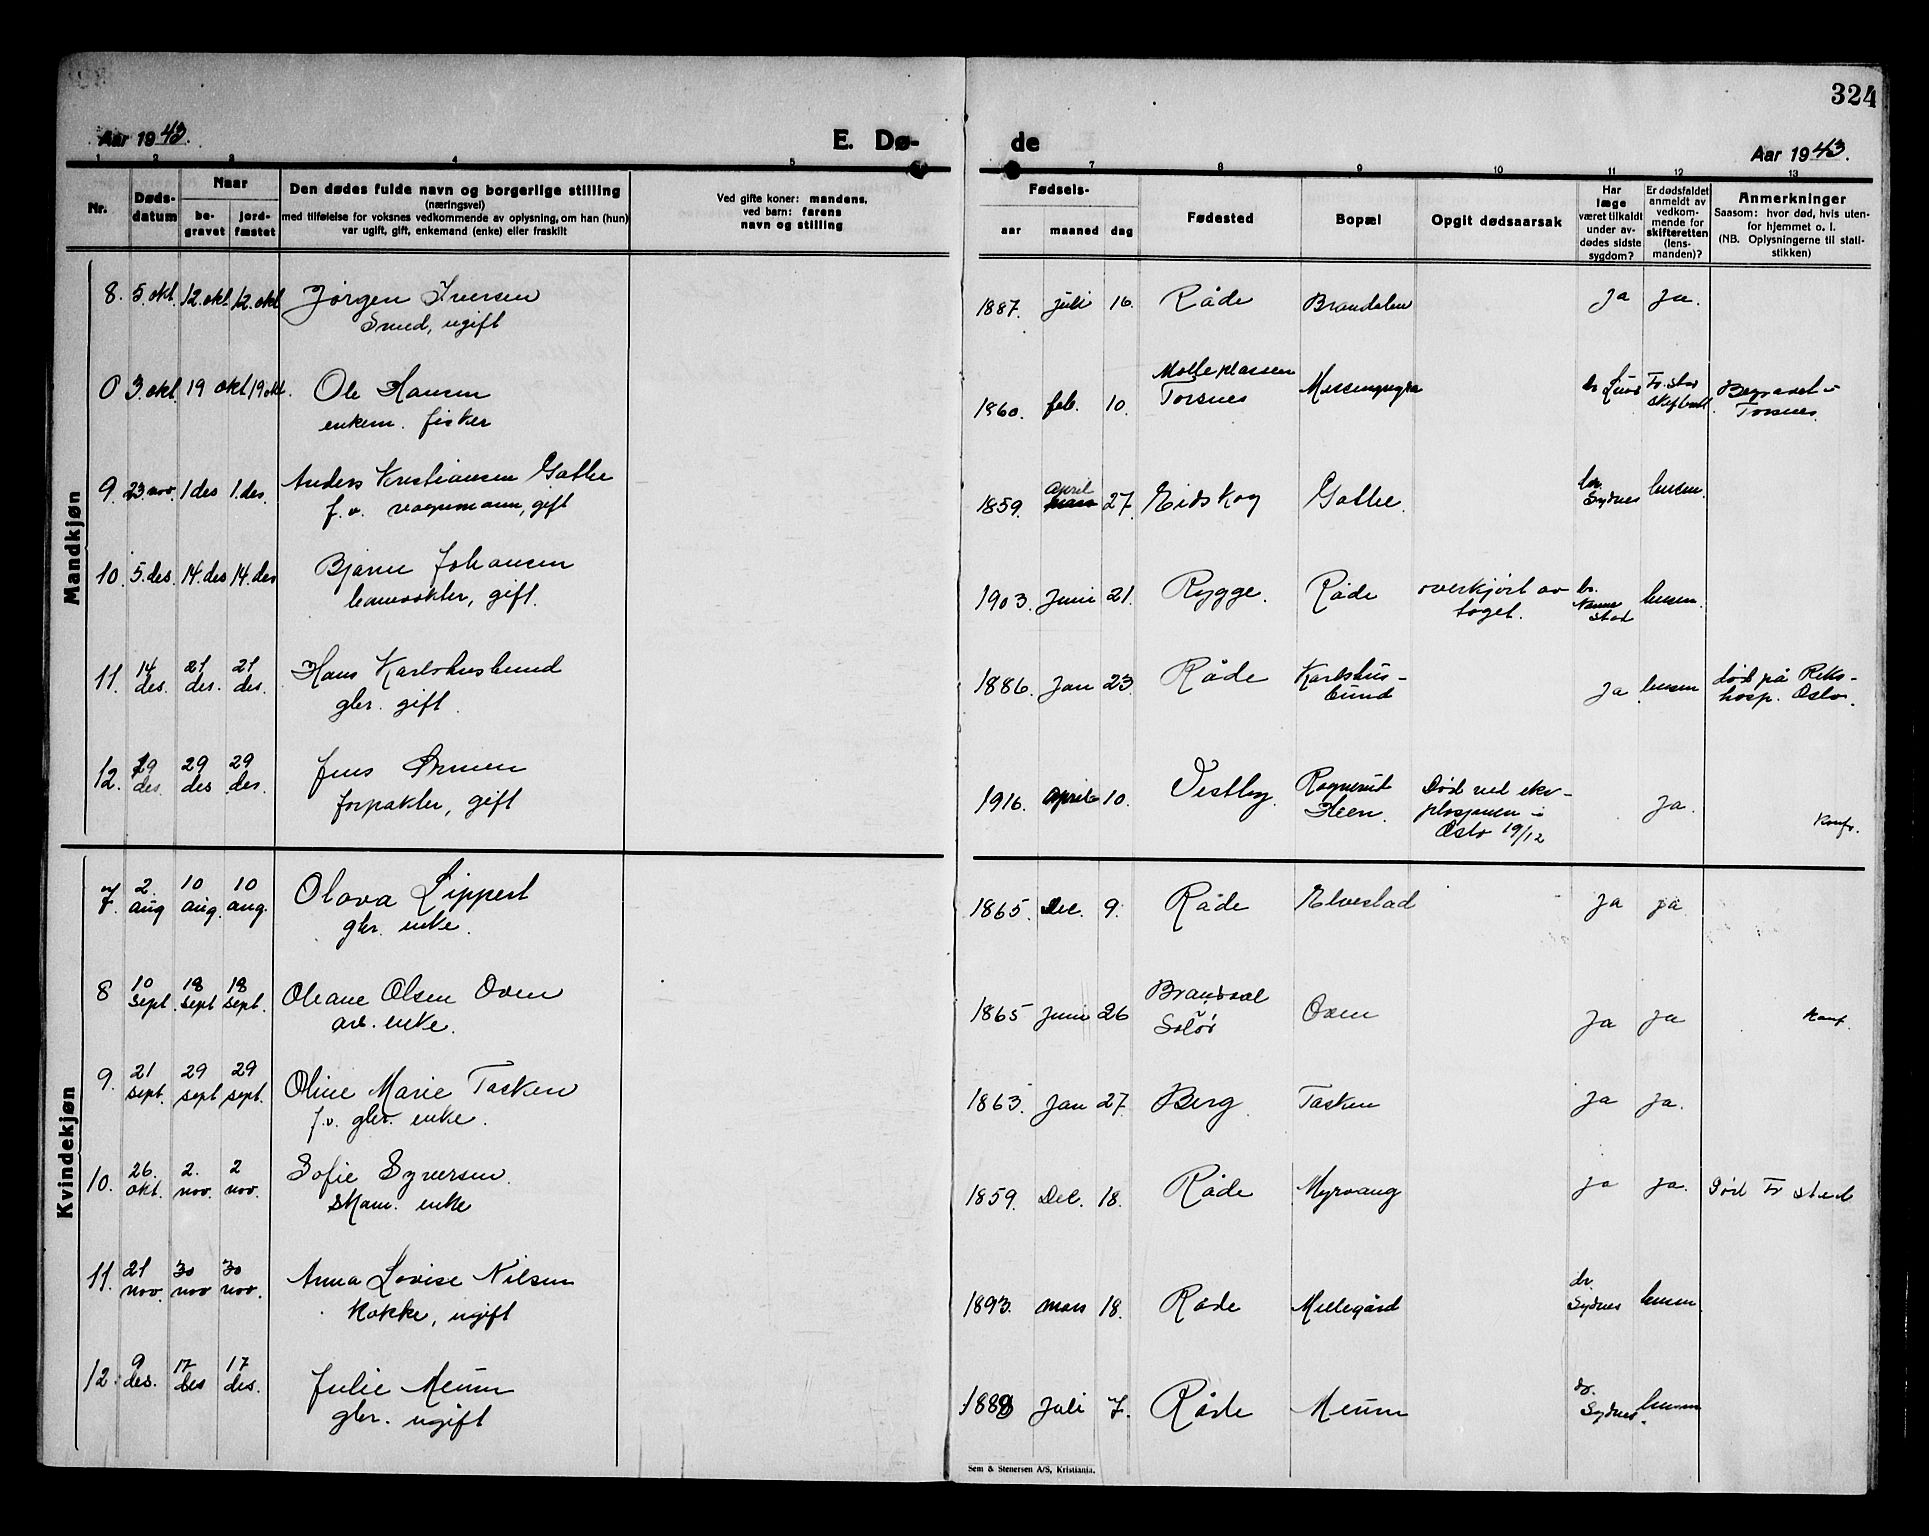 324
Aar 1943.
E. Dø-
de
Aar 1943.
1 2 3 4 5 7 8 9 10 11 12 13
Nr.
Døds-
datum
Naar
be-
gravet
jord-
fæstet
Den dødes fulde navn og borgerlige stilling
(næringsvei)
med tilføielse for voksnes vedkommende av oplysning, om han (hun)
var ugift, gift, enkemand (enke) eller fraskilt
Ved gifte koner: mandens,
ved barn: farens
navn og stilling
Fødsels-
aar
maaned
dag
Fødested
Bopæl
Opgit dødsaarsak
Har
læge
været tilkaldt
under av-
dødes sidste
sygdom?
Er dødsfaldet
anmeldt av
vedkom-
mende for
skifteretten
(lens-
manden)?
Anmerkninger
Saasom: hvor død, hvis uten-
for hjemmet o. l.
(NB. Oplysningerne til stati-
stikken)
Mandkjøn
8. 5. okt. 12. okt. 12. okt. Jørgen Iversen 1887. juli 16. Råde Ja Ja.
Smed, ugift
0 3. okt. 19 okt 19 okt. Ole Hansen 1860. feb. 10. Torsnes Begravet i
enkem. fisker Torsnes.
9. 23. nov. 1 des 1. des. Anders Kristiansen 1859. april 27. Eidskog dr. Sydnes lensm.
f. v. gift
10. 5. des. 14. des 14. des Bjarne Johansen 1903. Juni 21. Rygge. Råde overkjørt av dr. lensm.
gift. toget.
11. 14 des. 21 des. 21 des. Hans Karlshusbund 1886. Jan 23. Råde Karlshus- Ja lensm død på Riks-
gbr. gift. bund hosp. Oslo.
12. 29 des. 29 des. 29 des. Jens 1916. april 10. Vestby. Død ved eks- Ja.
forpakter, gift plosjonen i
Oslo 19/12
Konf.
Kvindekjøn
7. 2. aug 10 aug. 10 aug. Olava Lippert 1865. Dec. 9. Råde Elvestad Ja ja
gbr. enke.
8 10 sept. 18 sept 18 sept. Oleane Olsen Oven 1865 Juni 26 Brandval Oven Ja Ja Konf.
arb. enke. Solør
9. 21 sept. 29 sept 29 sept. Oline Marie Tasken 1863. Jan 27. Berg. Tasken Ja Ja.
f. v. gbr. enke.
10. 26. okt. 2. nov. 2 nov. Sofie Syversen. 1859. Dec. 18. Råde Myrvang Ja Ja. Død Fr. stad
enke
11. 21 nov. 30 nov 30 nov. Anna Lovise Nilsen 1893. mars 18. Råde dr. Sydnes lensm
Kokke, ugift
12. 9 des. 17 des 17 des. Julie Meum 1888 Juli 7. Råde Meum dr. Sydnes. lensm
gbr. ugift
Sem & Stenersen A/S, Kristiania.